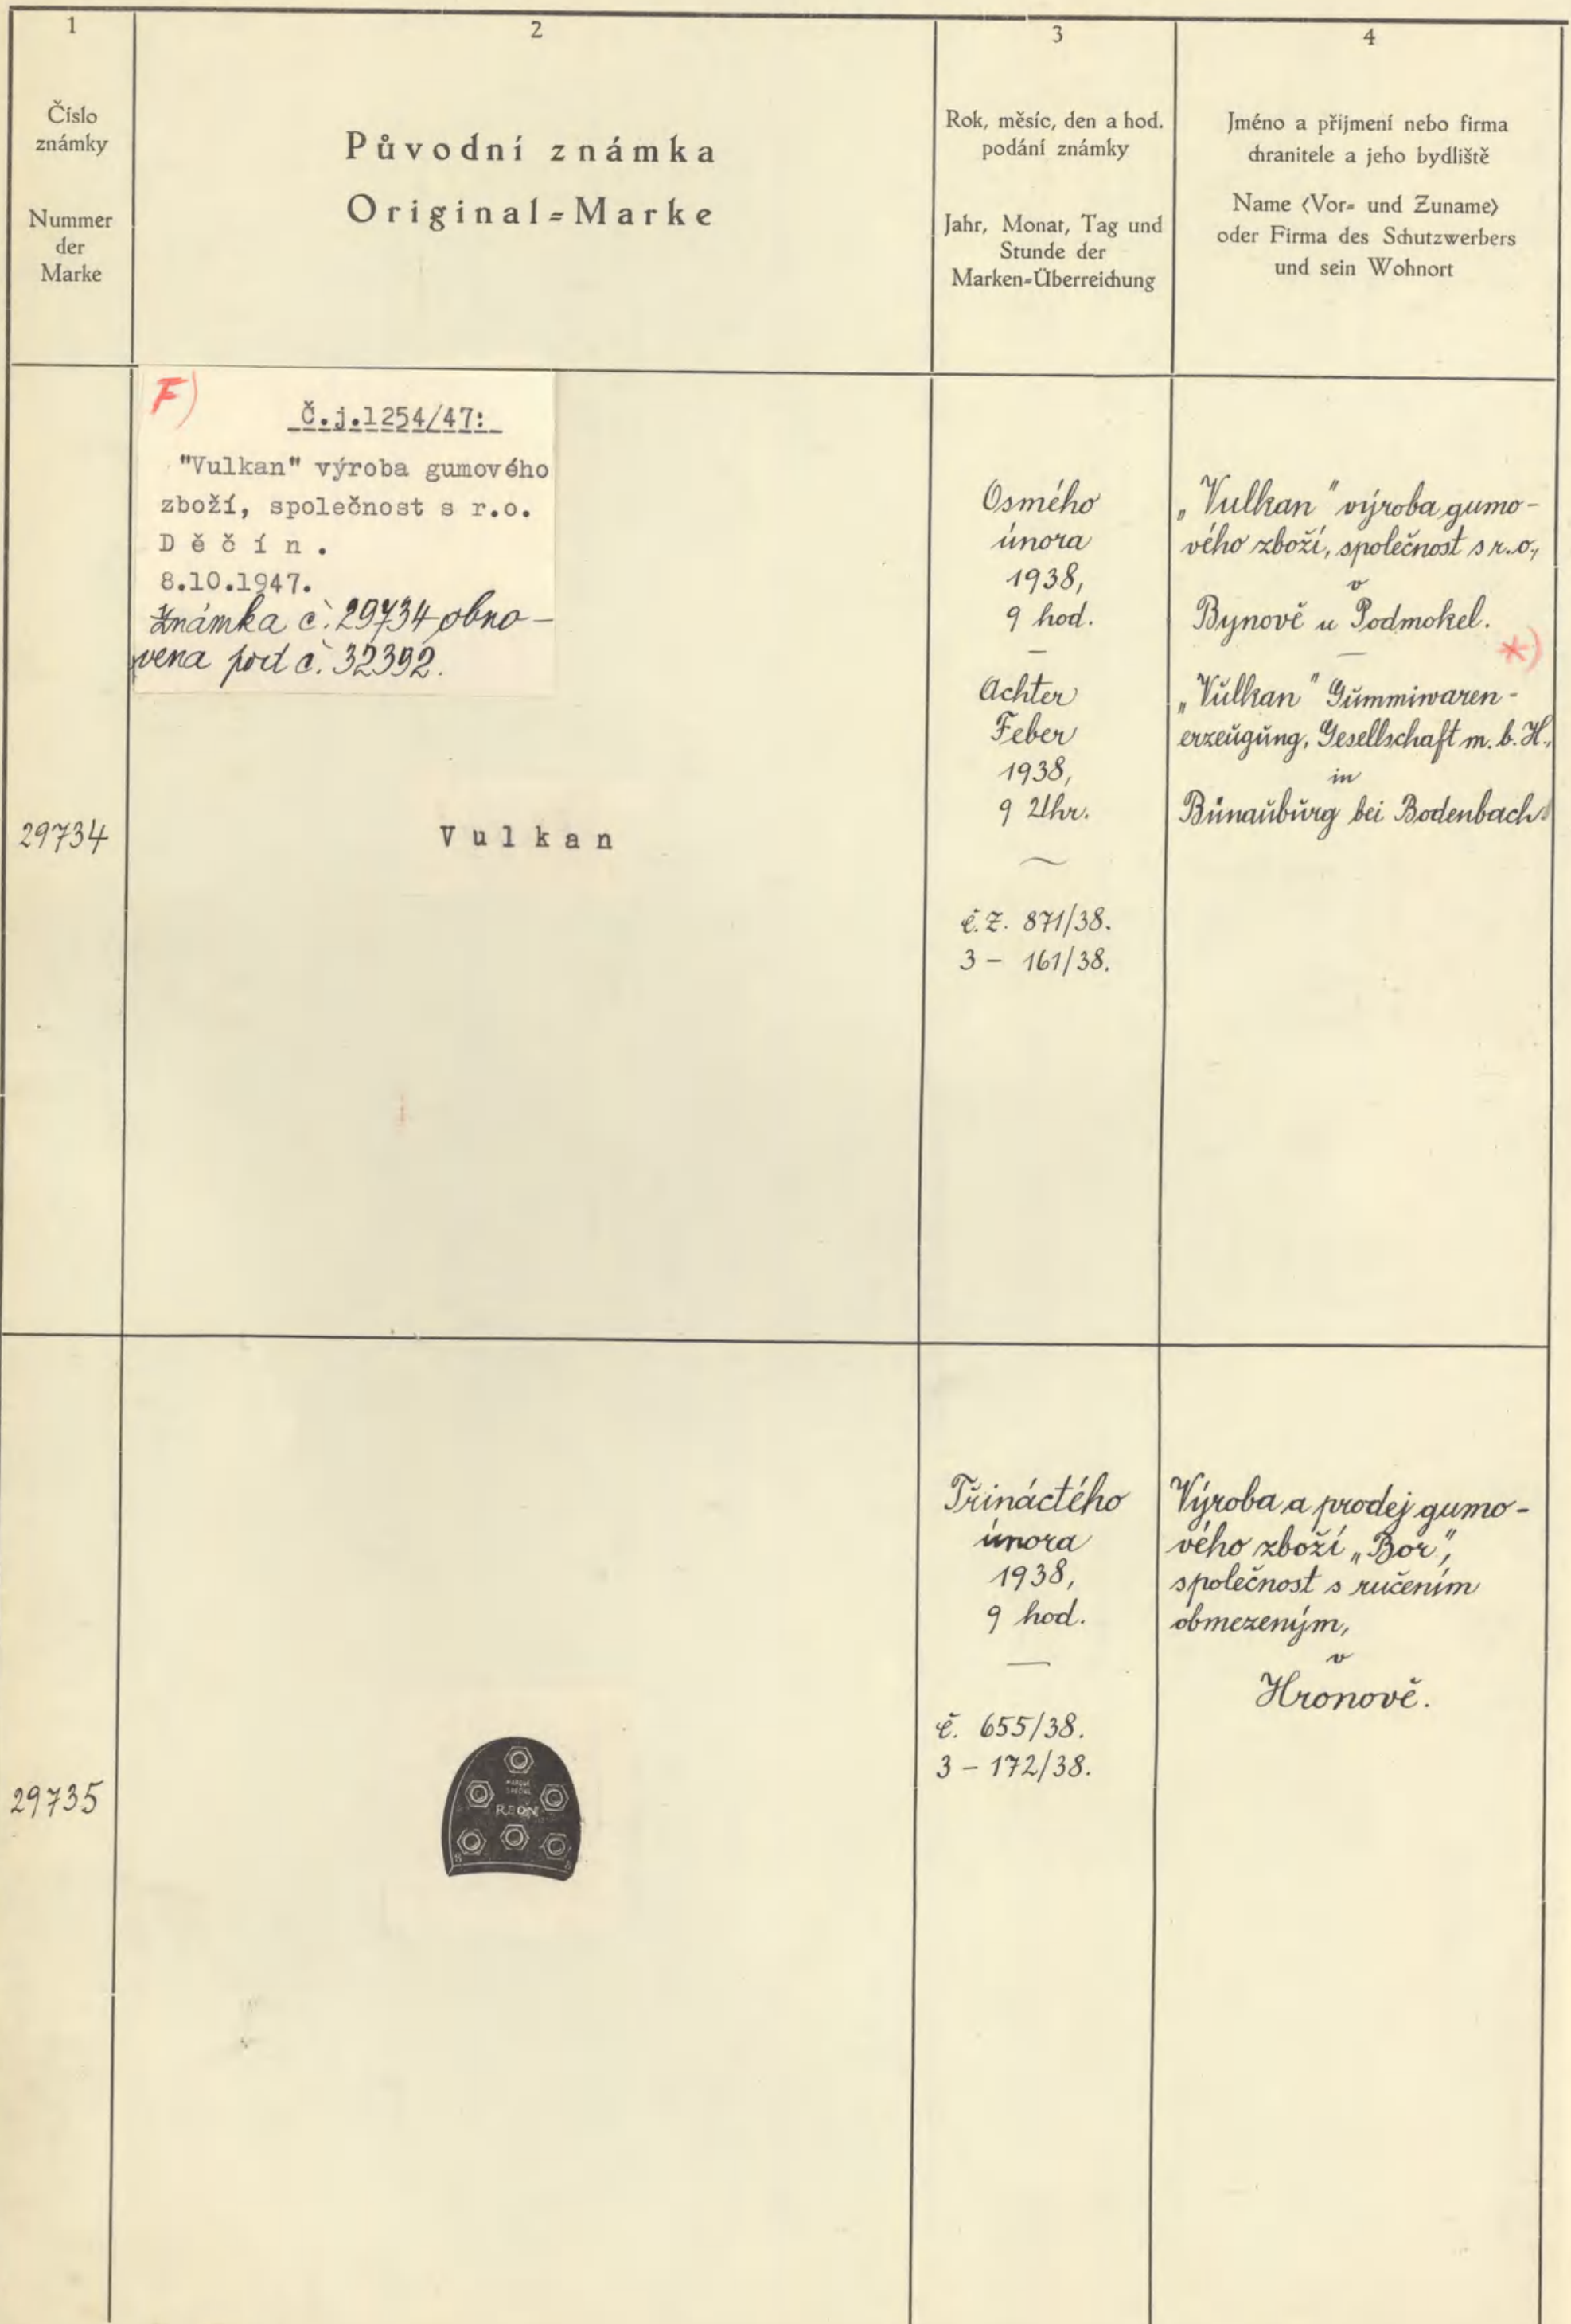 1
Číslo
známky
Nummer
der
Marke
2
Původní známka
Original=Marke
3
Rok, měsíc, den a hod.
podání známky
Jahr, Monat, Tag und
Stunde der
Marken=Überreichung
4
Jméno a příjmení nebo firma
chranitele a jeho bydliště
Name (Vor= und Zuname)
oder Firma des Schutzwerbers
und sein Wohnort
29734
F)
Č.j.1254/47:
"Vulkan" výroba gumového
zboží, společnost s r.o.
Děčín.
8.10.1947.
Známka č. 29734 obno-
vena pod č. 32392.
Vulkan
Osmého
února
1938,
9 hod.
—
Achter
Feber
1938,
9 Uhr.
č.Z. 871/38.
3 - 161/38.
„Vulkan" výroba gumo-
vého zboží, společnost s r. o.,
v
Bynově u Podmokel.
—
*)
„Vulkan" Gummiwaren-
erzeugung, Gesellschaft m. b. H.,
in
Bünauburg bei Bodenbach
29735
REON
8 8
Třináctého
února
1938,
9 hod.
—
č. 655/38.
3 - 172/38.
Výroba a prodej gumo-
vého zboží „Bor",
společnost s ručením
obmezeným,
v
Hronově.